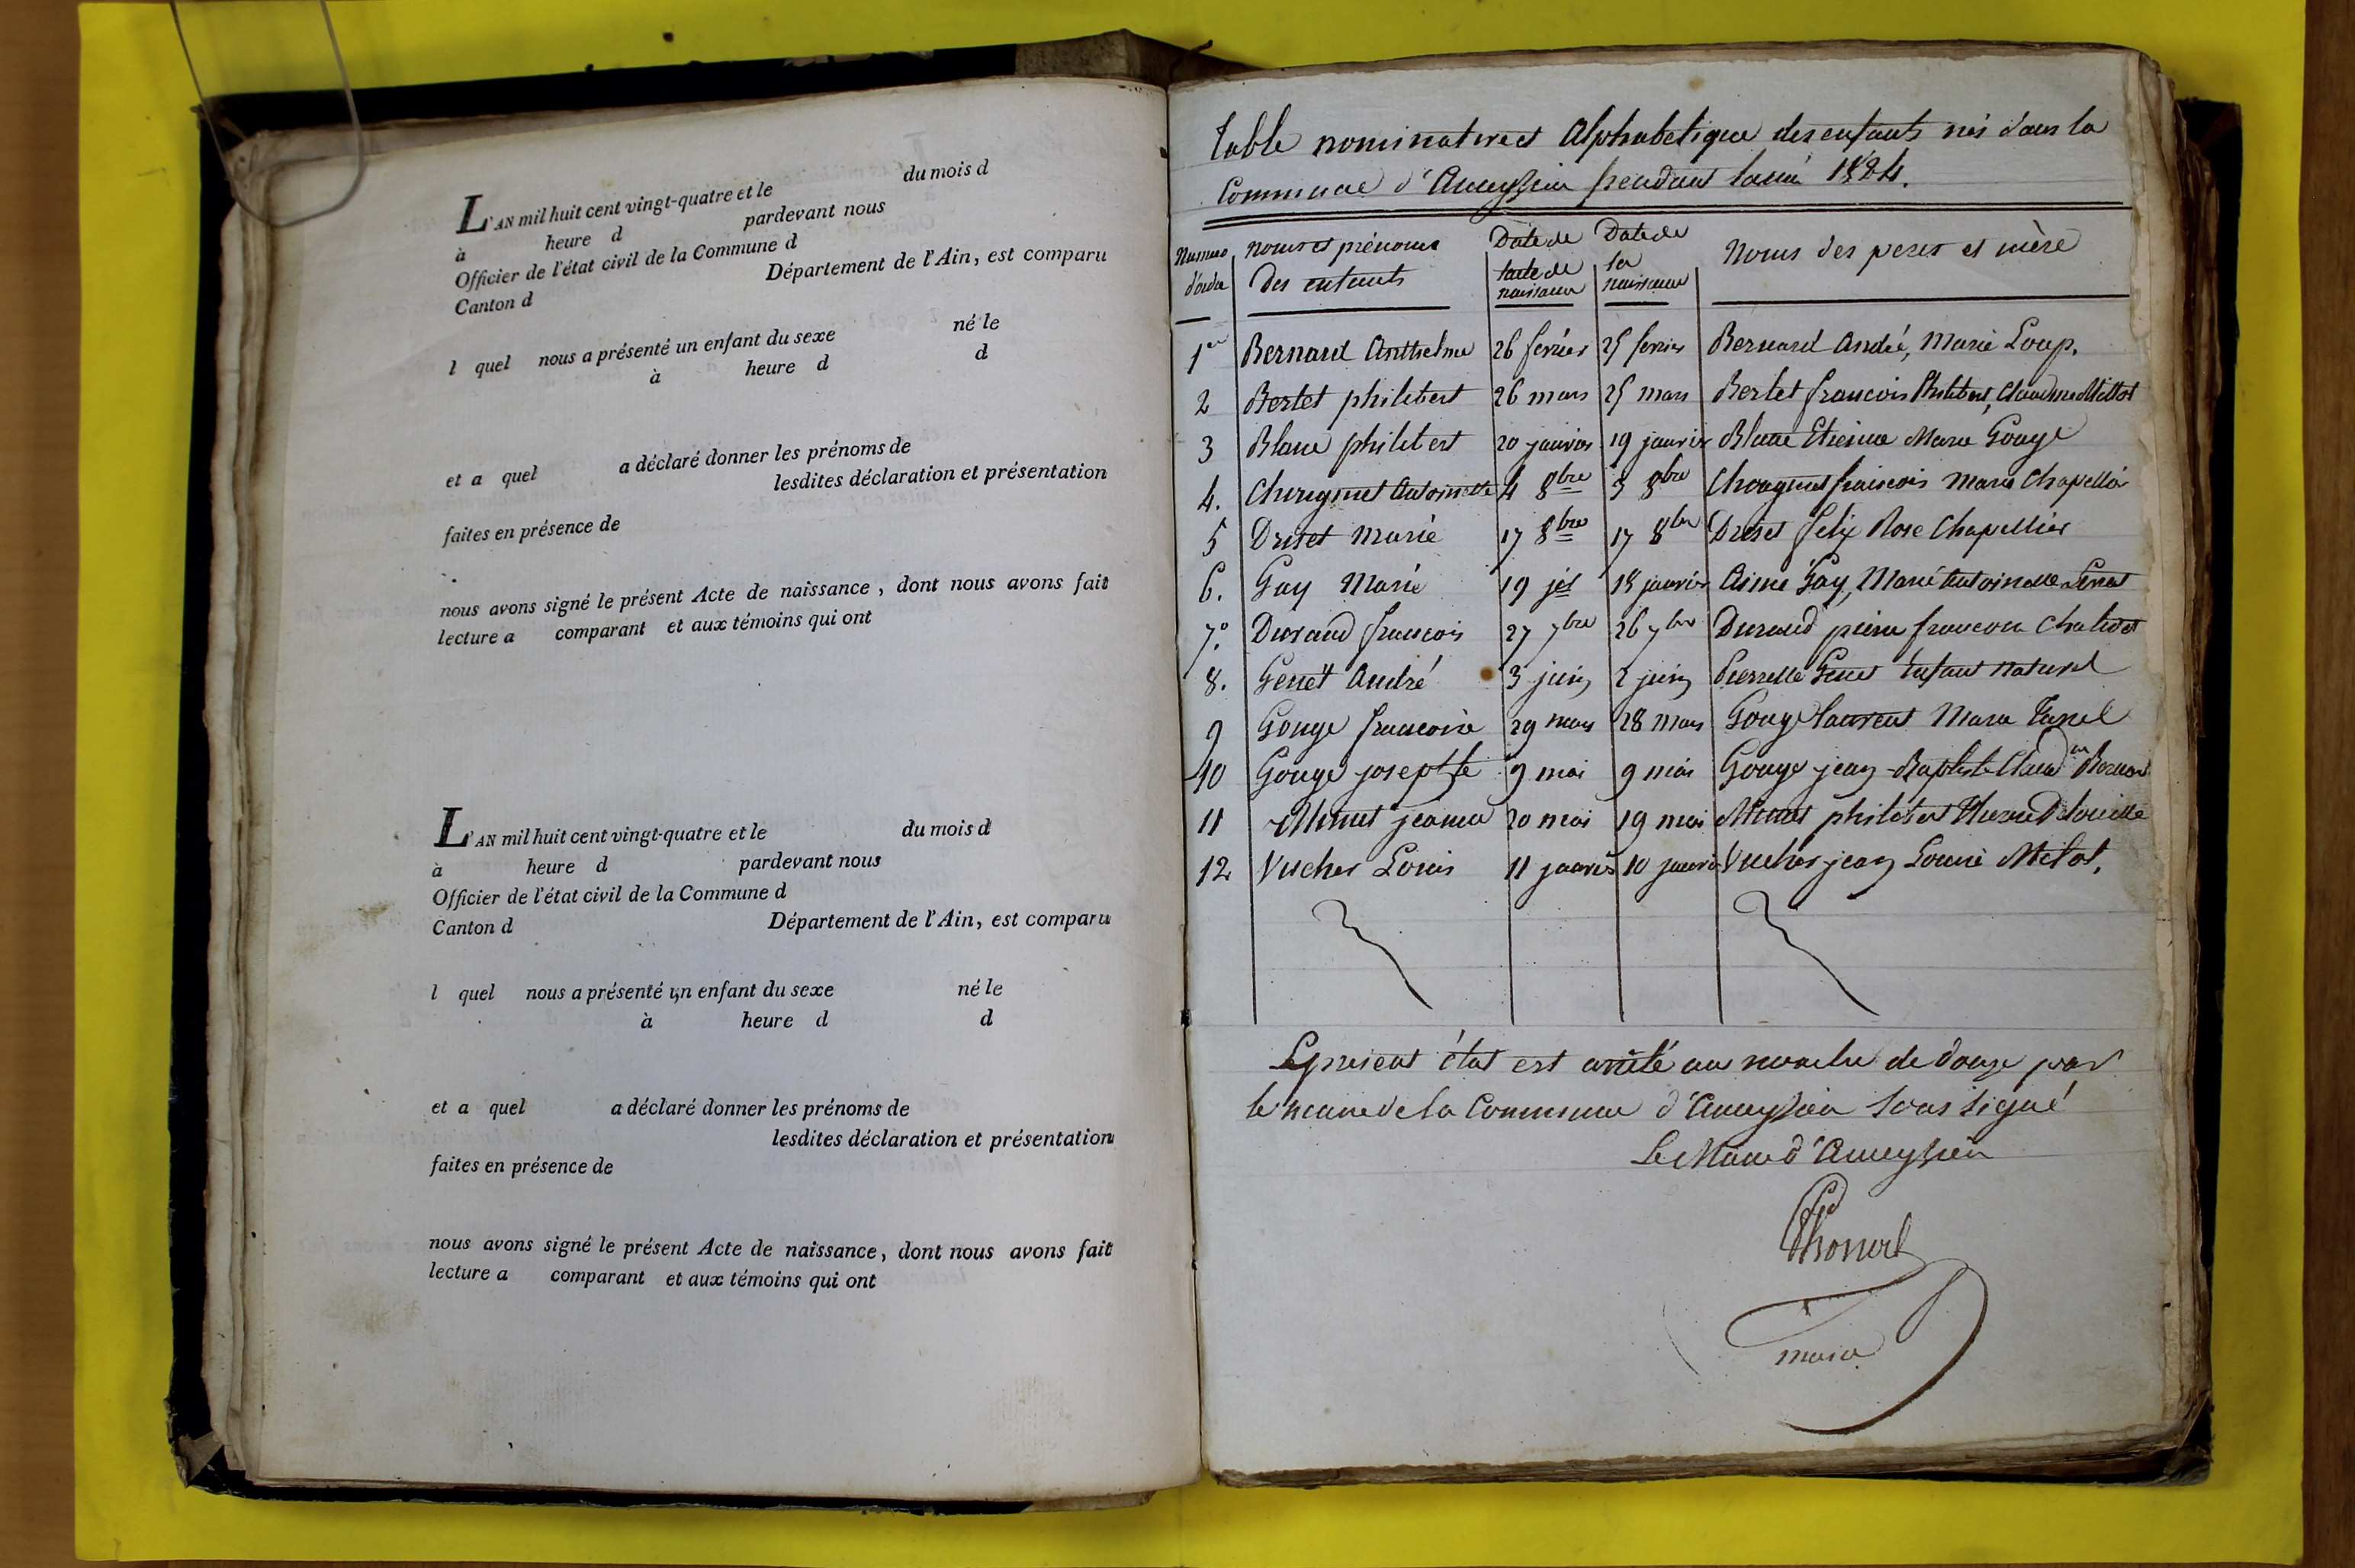 L'AN mil huit cent vingt-quatre et le du mois d
à heure d pardevant nous
Officier de l'état civil de la Commune d
Canton d Département de l'Ain, est comparu
l quel nous a présenté un enfant du sexe né le
à heure d d
et a quel a déclaré donner les prénoms de
lesdites déclaration et présentation
faites en présence de
nous avons signé le présent Acte de naissance, dont nous avons fait
lecture a comparant et aux témoins qui ont
L'AN mil huit cent vingt-quatre et le du mois d
à heure d pardevant nous
Officier de l'état civil de la Commune d
Canton d Département de l'Ain, est comparu
l quel nous a présenté un enfant du sexe né le
à heure d d
et a quel a déclaré donner les prénoms de
lesdites déclaration et présentation
faites en présence de
nous avons signé le présent Acte de naissance, dont nous avons fait
lecture a comparant et aux témoins qui ont
Table nominative et Alphabetique des enfants nés dans la
Commune d'Ameyzieu pendant lanné 1824.
Numero d'ordre noms et prénoms des enfants Date de lacte de naissance Date de la naissance Noms des peres et mère
1er Bernard Anthelme 26 février 25 fevrier Bernard André, Marie Loup.
2 Bertet philibert 26 mars 25 mars Bertet francois Philibert, Claudine Millot
3 Blanc philibert 20 janvier 19 janvier Blanc Etienne Marie Gouge
4. Antoinette 4 8bre 3 8bre francois Marie Chapellier
5 Marie 17 8bre 17 8bre felix Rose Chapellier
6. Gay Marie 19 18 janvier Aimé Gay, Marie Antoinette
7° Durand francois 27 7bre 26 7bre Durand pierre
8. Genet André 3 juin 2 juin Pierrette Genet Enfant naturel
9 Gouge francoise 29 mars 28 mars Gouge Laurent Marie
10 Gouge josephte 9 mai 9 mai Gouge jean-Baptiste Claudine Bernard
11 jeanne 20 mai 19 mai philibert
12 Vucher Louis 11 janvier 10 janvier Vucher jean Louise Millot.
Le présent état est arrêté au nombre de douze par
le maire de la Commune d'Ameyzieu sous signé
Le Maire d'Ameyzieu
maire